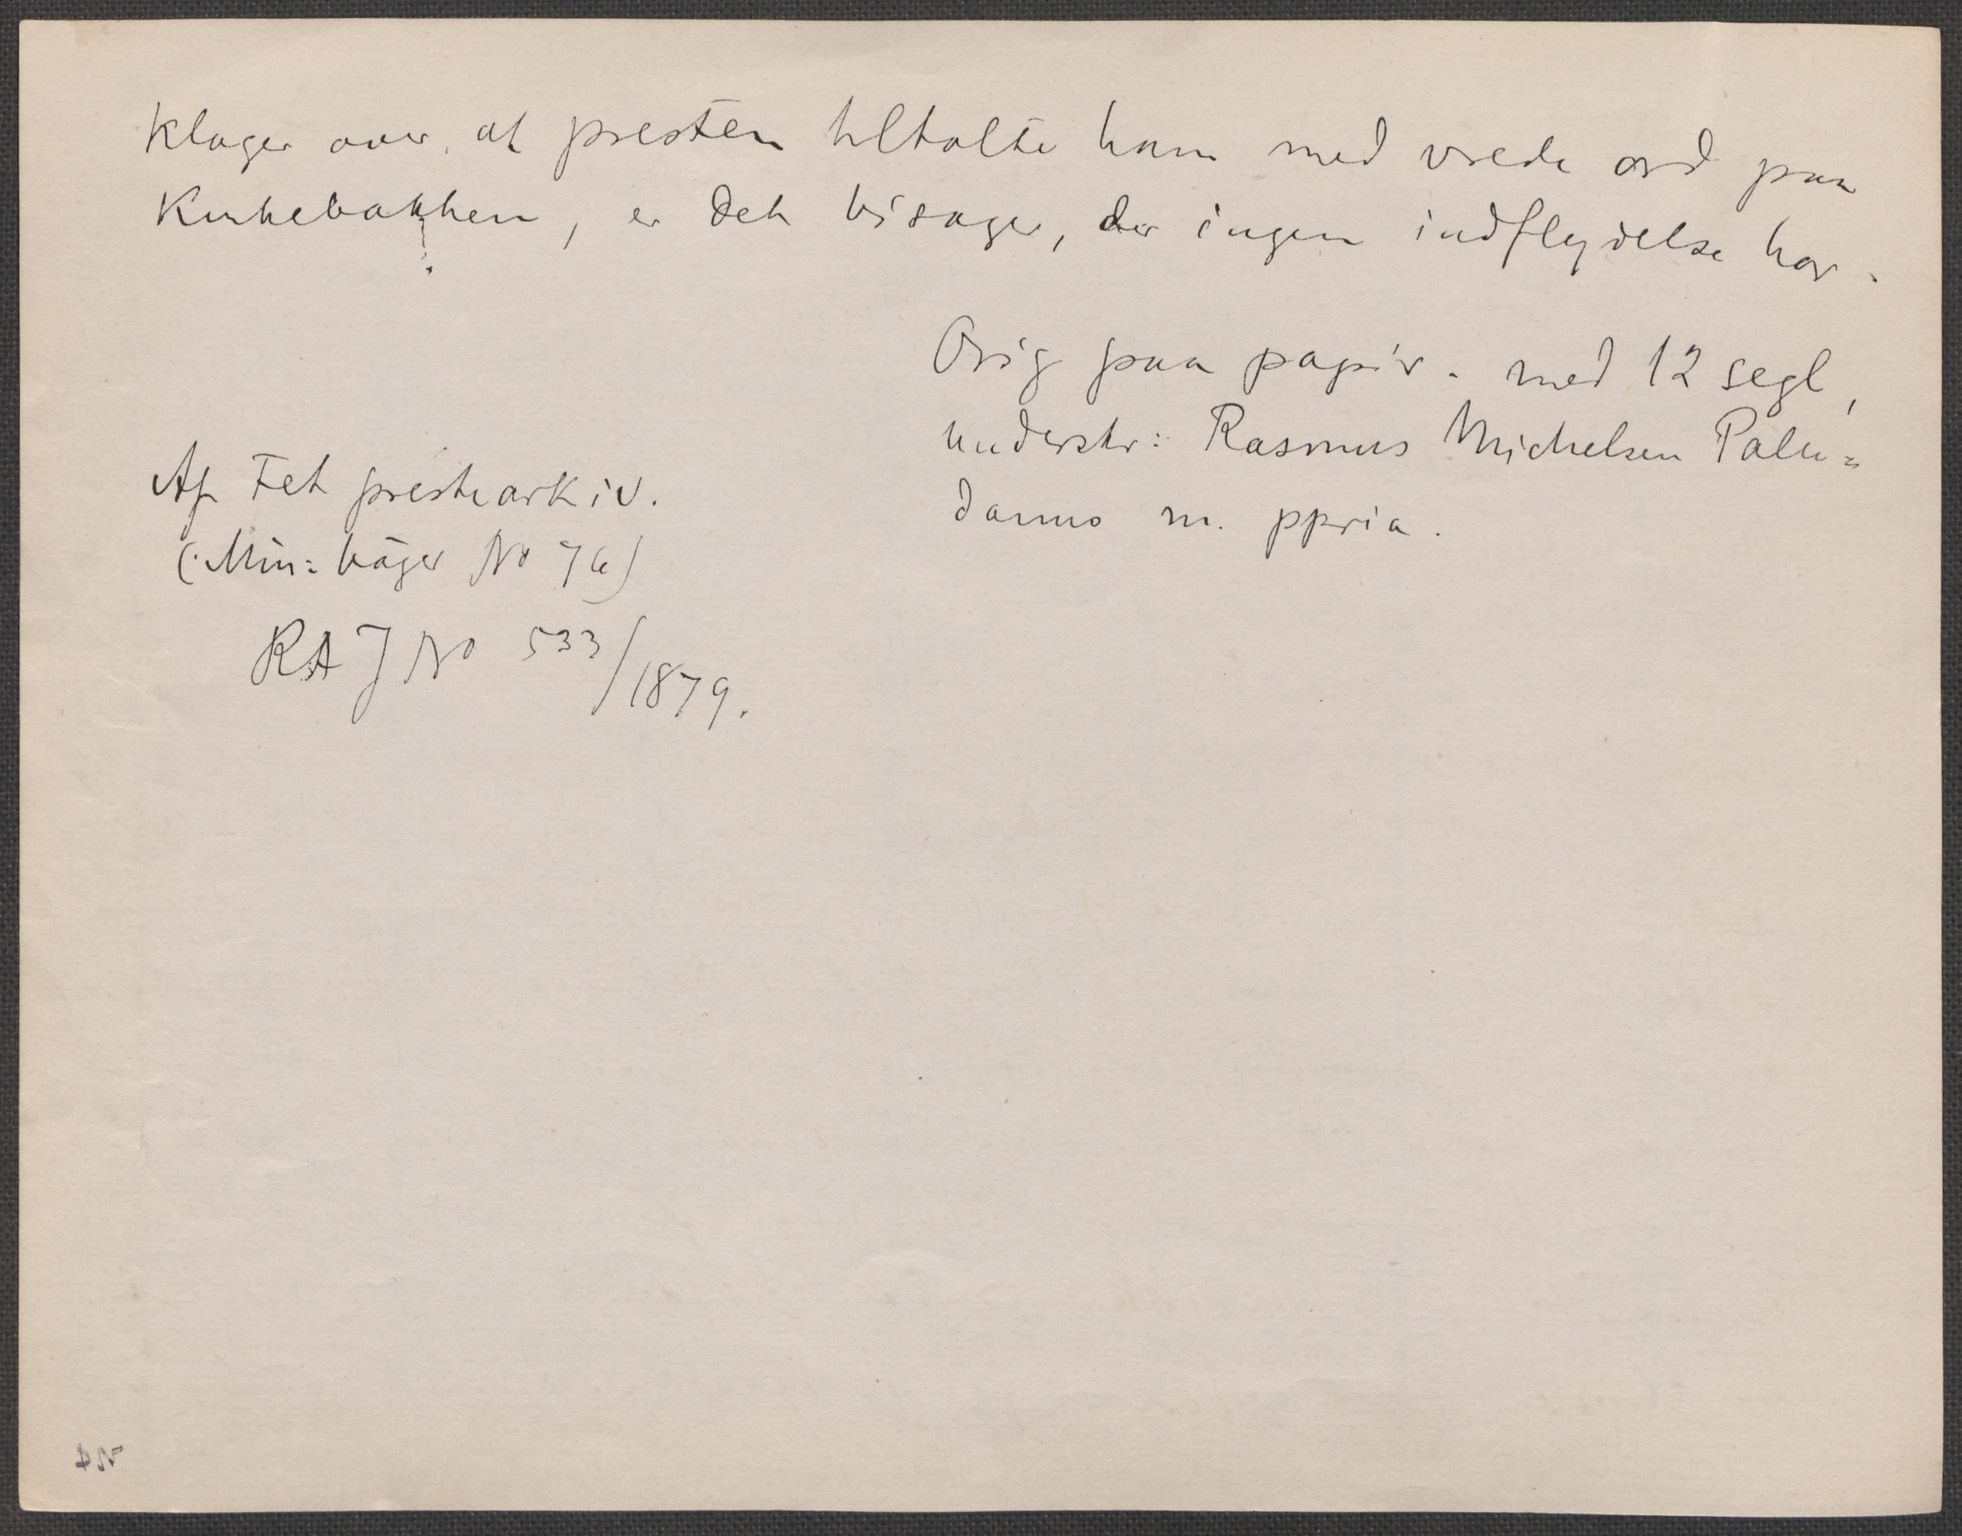 klager over, at presten tiltalte ham med vrede ord paa
Kirkebakken, er det bisager, der ingen indflydelse har.
Orig paa papir. med 12 segl,
understr: Rasmus Michelsen Palu=
danus m. ppria.
Af Fet prestearkiv.
(Min: bøger No 7a)
RA J No 533/1879.